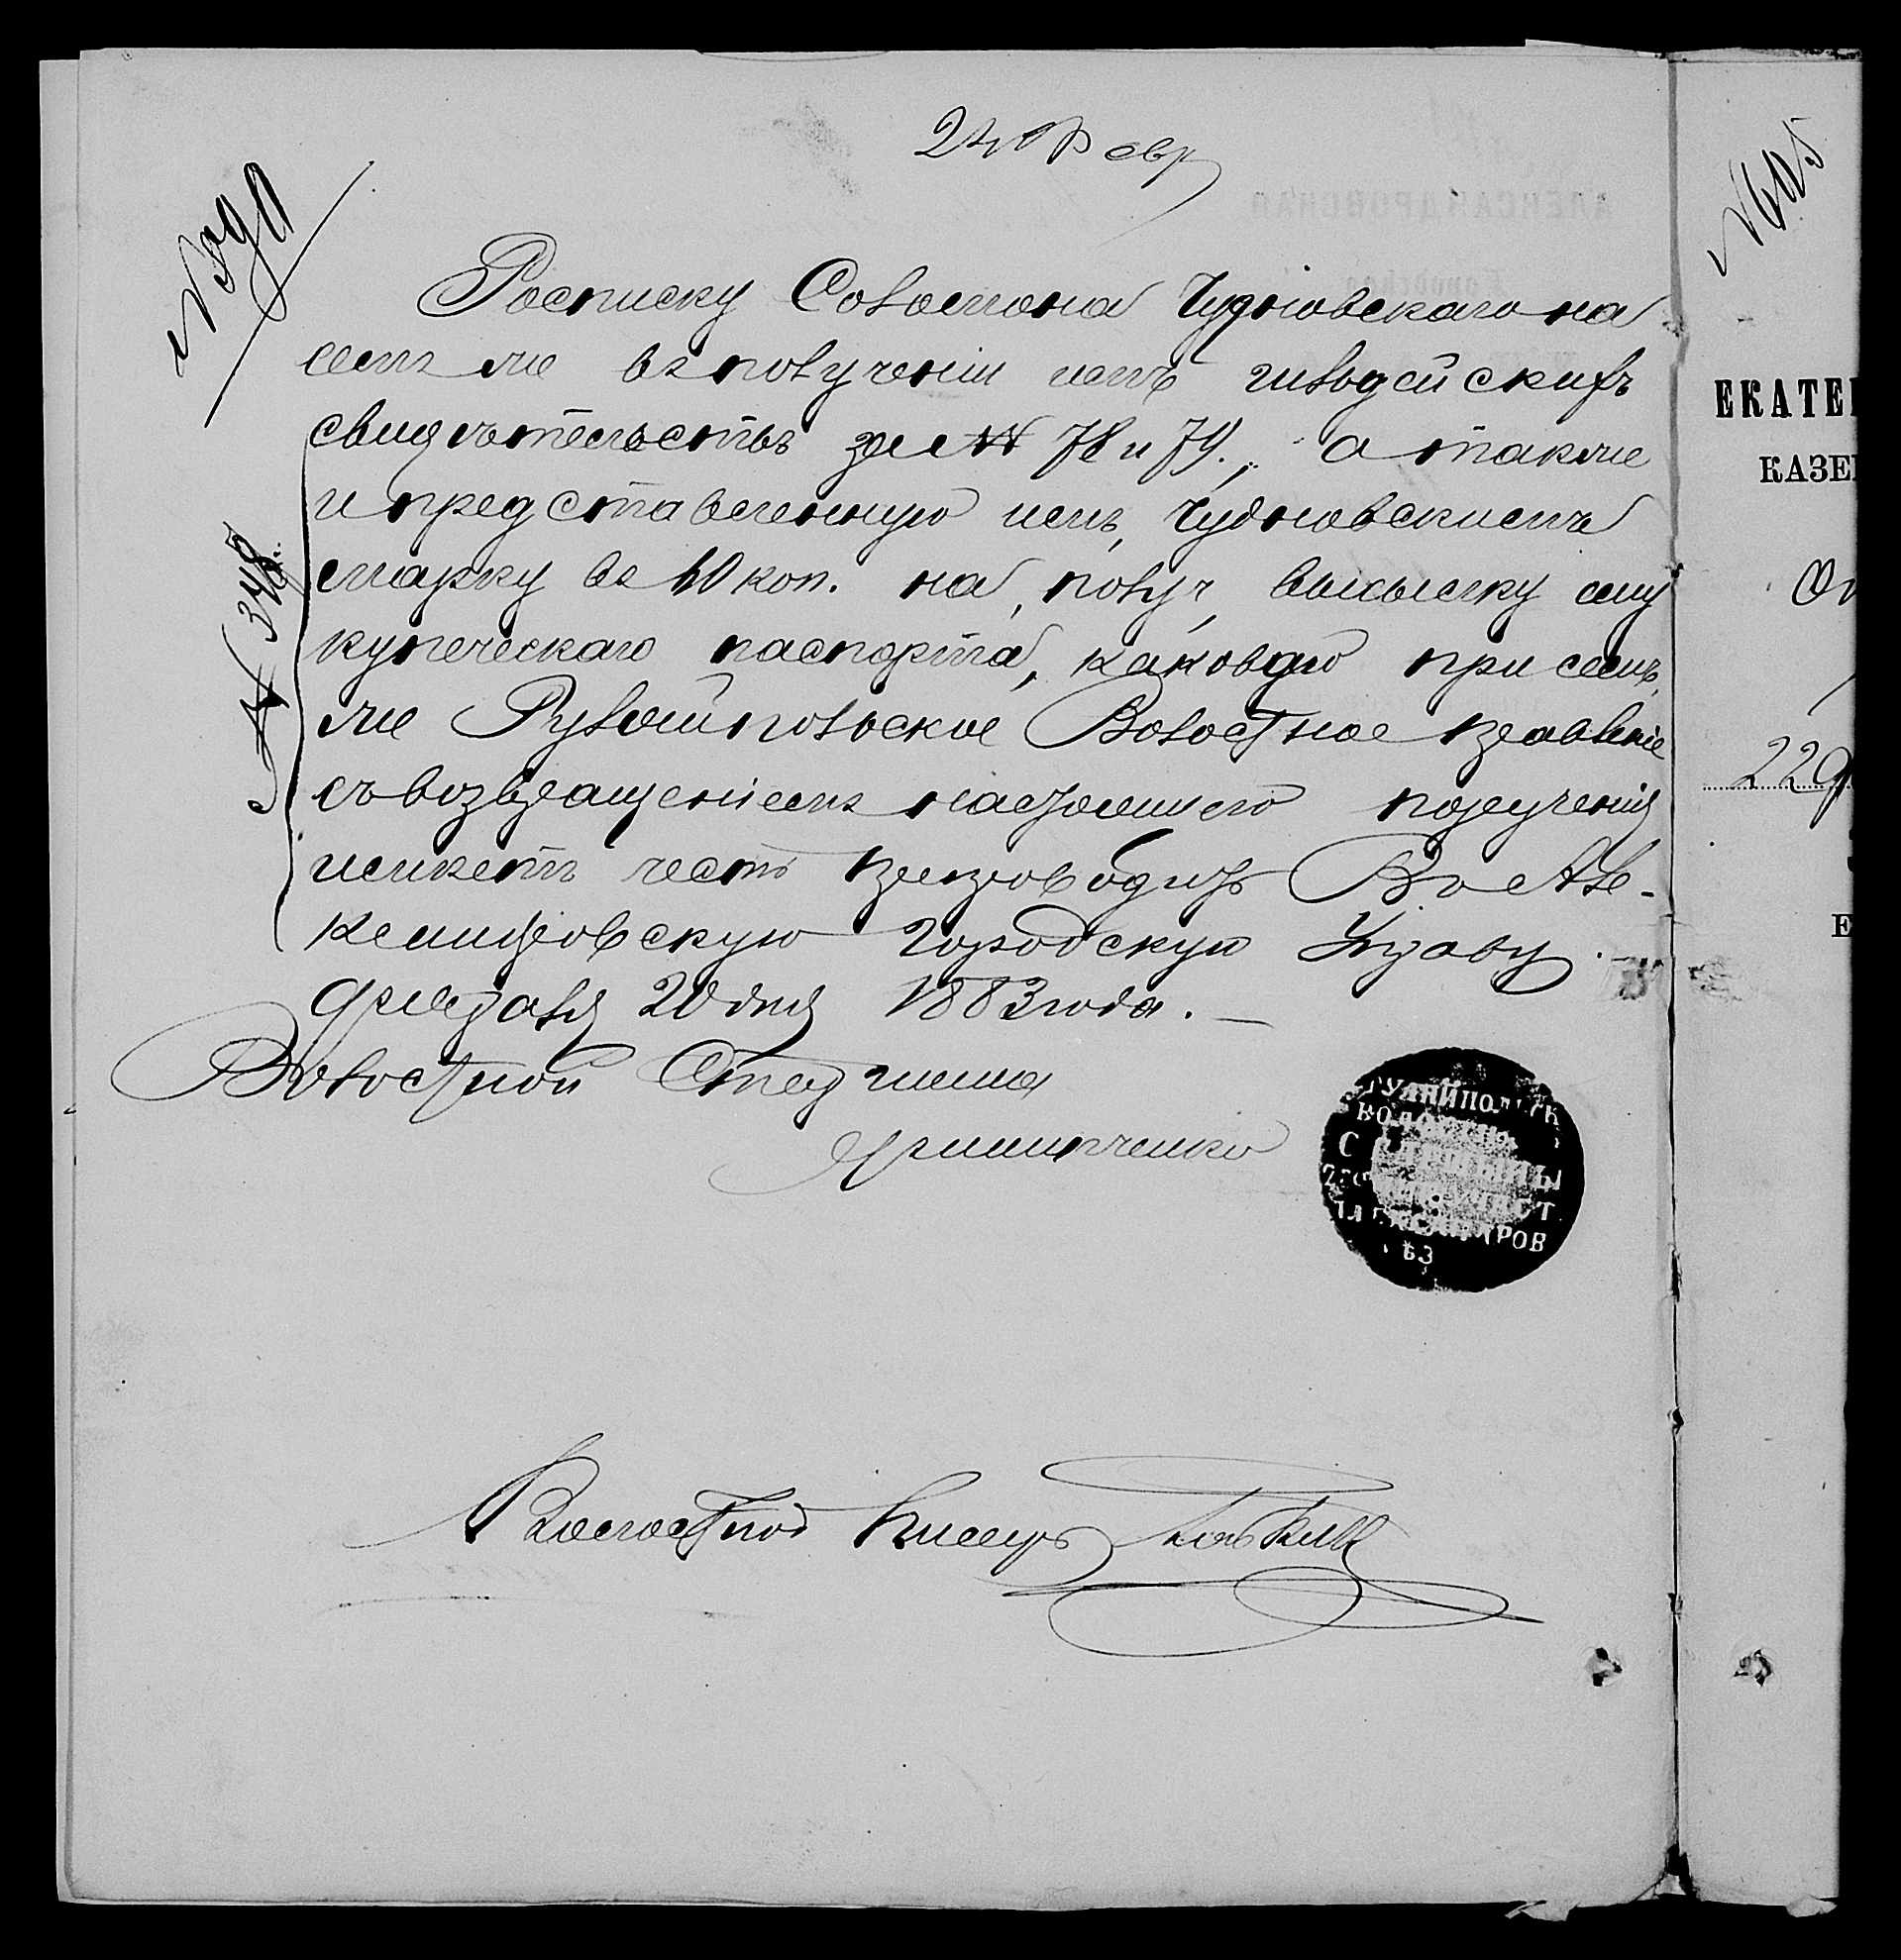 24 Февр
Росписку Соломона Чудновскаго на
семъ же въ полученіи имъ гильдейскихъ
свидѣтельствъ за № 78 и 79., а также
и представленную имъ, Чудновскимъ
марку въ 60 коп. на, получ, высылку ему
купеческаго паспорта, каковую при семъ
же Гуляйпольское Волостное правленіе
съ возвращеніемъ настоящаго порученія
имѣетъ честь препроводить Въ Але-
ксандровскую Городскую Управу.
Февраля 20 дня 1883 года.
Волостной Старшина
№ 348
Волостной Писарь
№ 605
ЕКАТЕ
КАЗЕ
22
Е